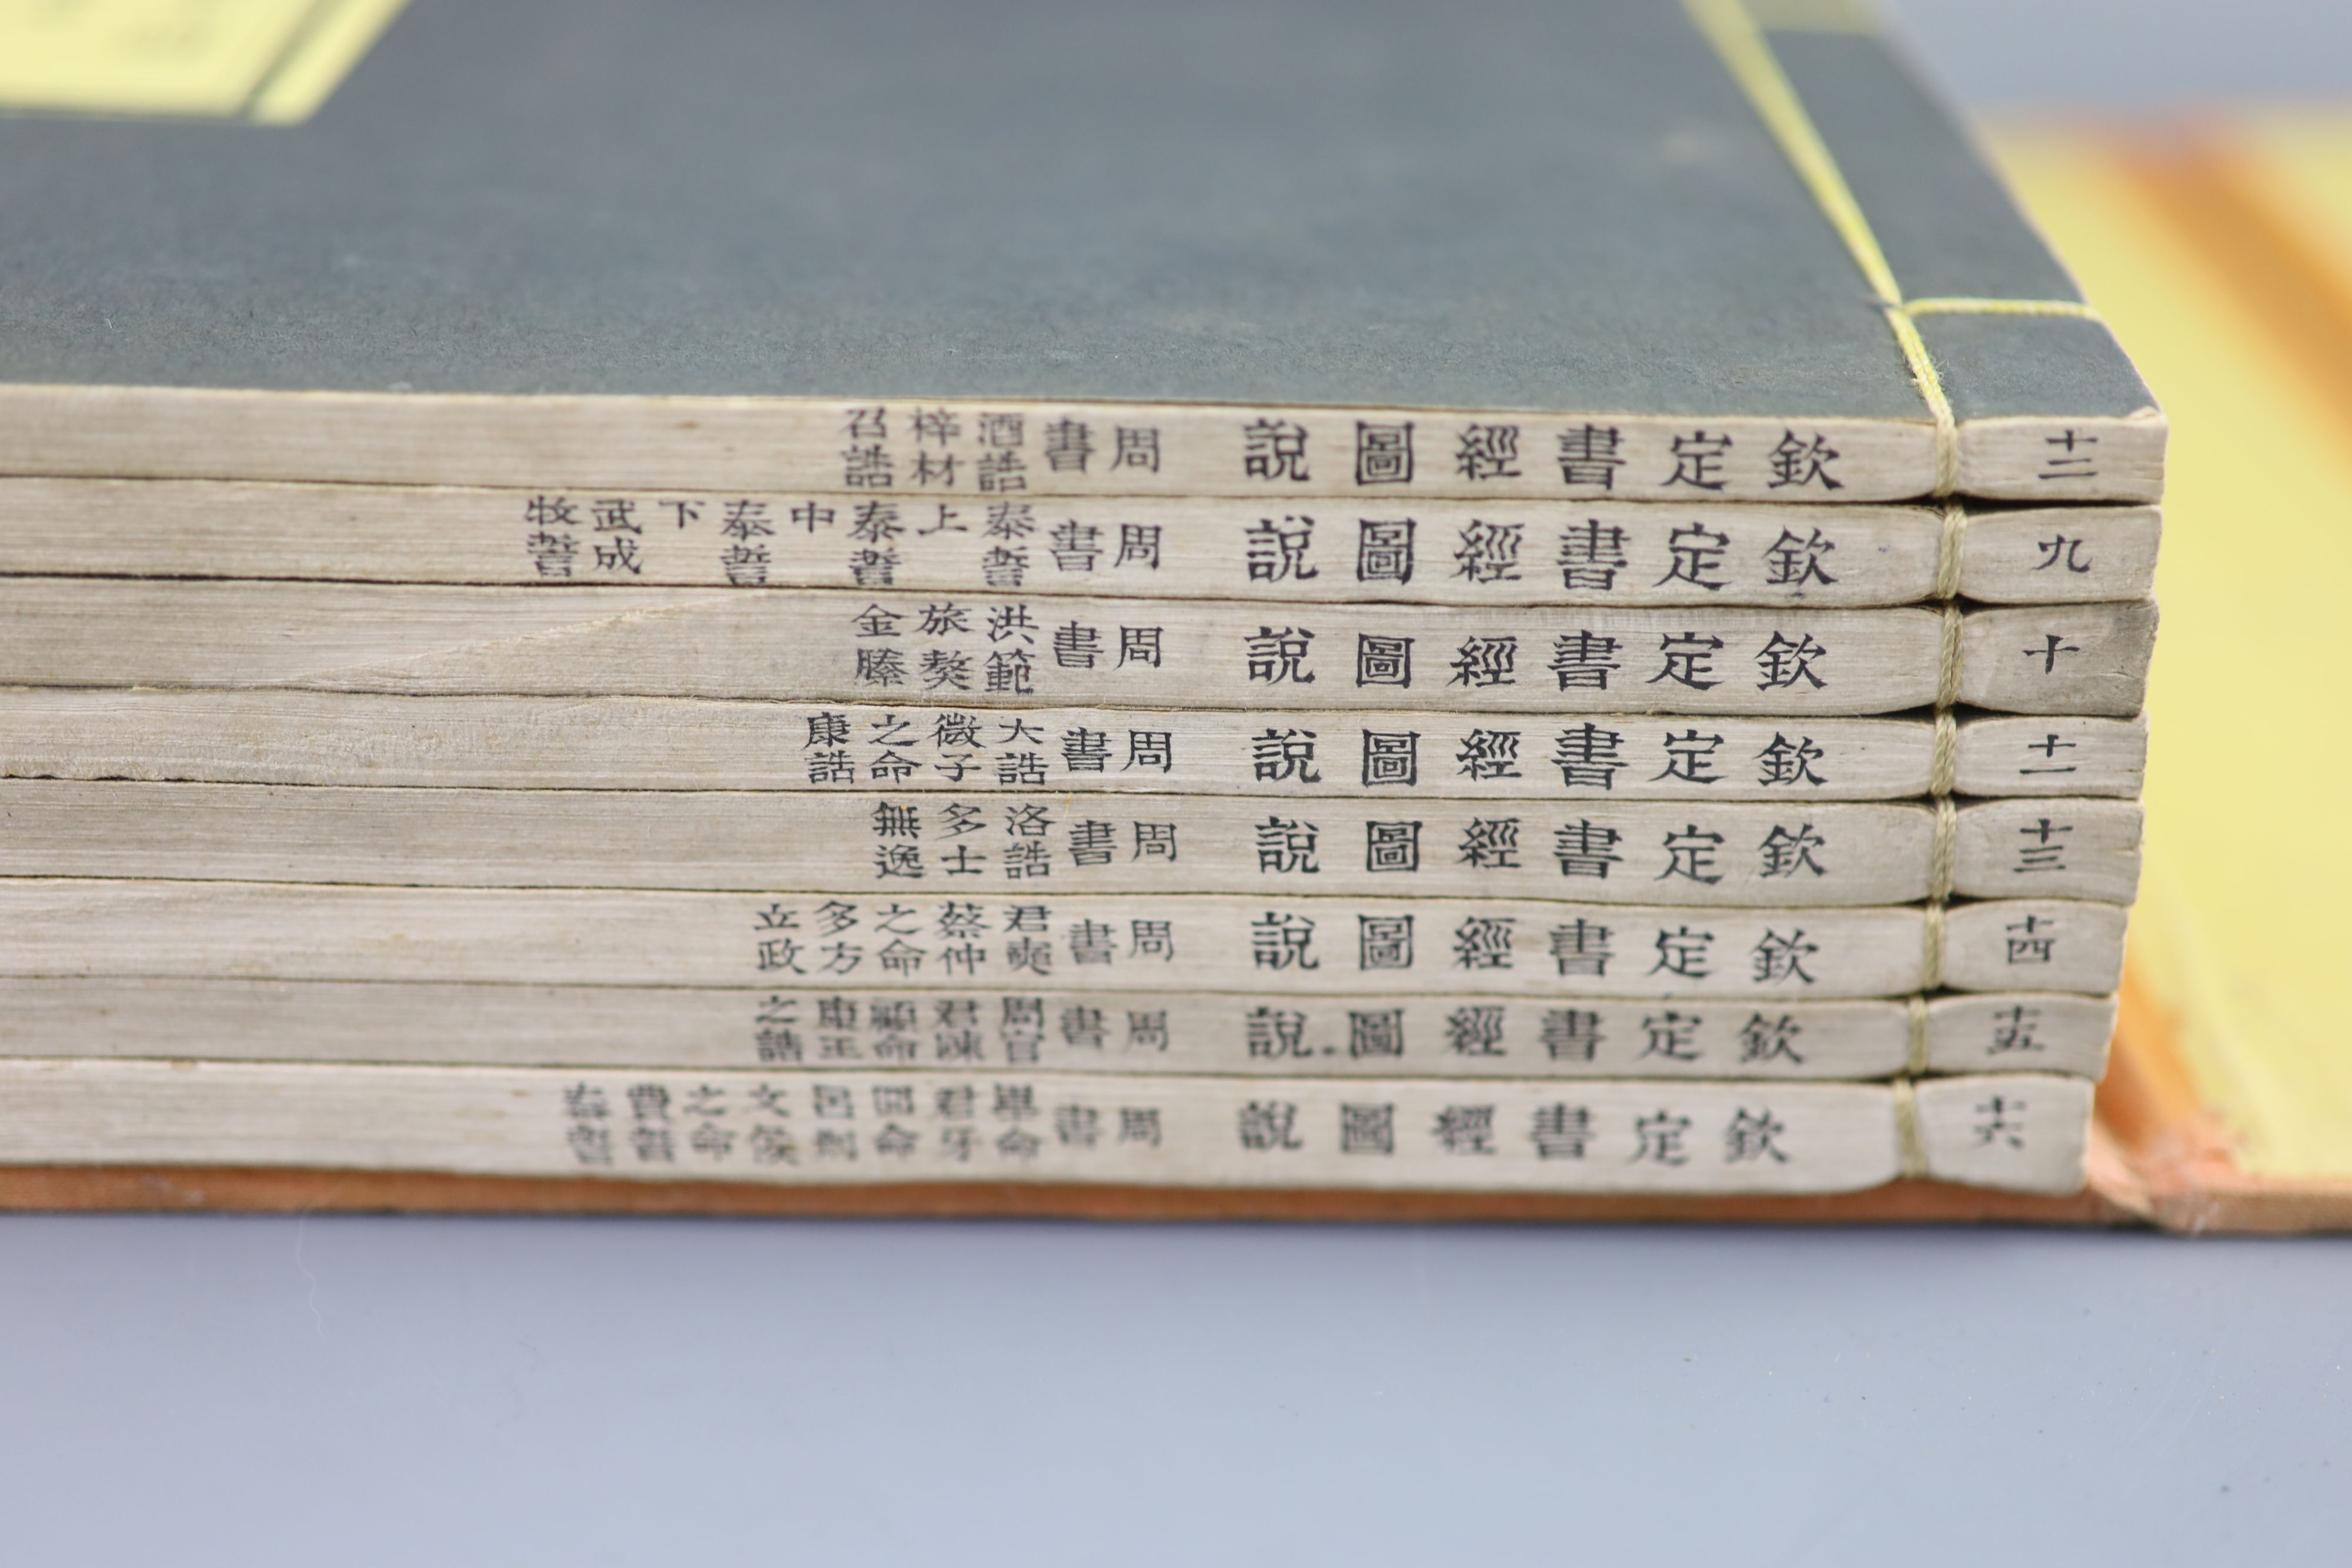 十二 欽定書經圖說 周書 酒誥 梓材 召誥
九 欽定書經圖說 周書 泰誓上 泰誓中 泰誓下 武成 牧誓
十 欽定書經圖說 周書 洪範 旅獒 金縢
十一 欽定書經圖說 周書 大誥 微子之命 康誥
十三 欽定書經圖說 周書 洛誥 多士 無逸
十四 欽定書經圖說 周書 君奭 蔡仲之命 多方 立政
十五 欽定書經圖說 周書 周官 君陳 顧命 康王之誥
十六 欽定書經圖說 周書 畢命 君牙 冏命 呂刑 文侯之命 費誓 秦誓